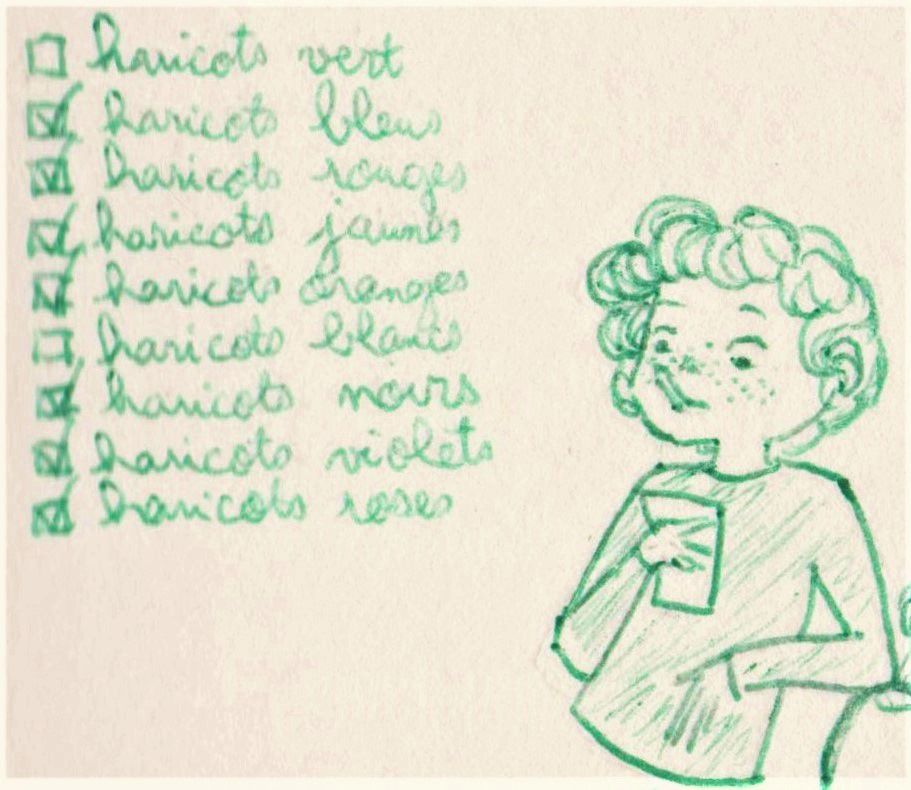 haricots vert
haricots bleus
haricots rouges
haricots jaunes
haricots oranges
haricots blancs
haricots noirs
haricots violets
haricots roses